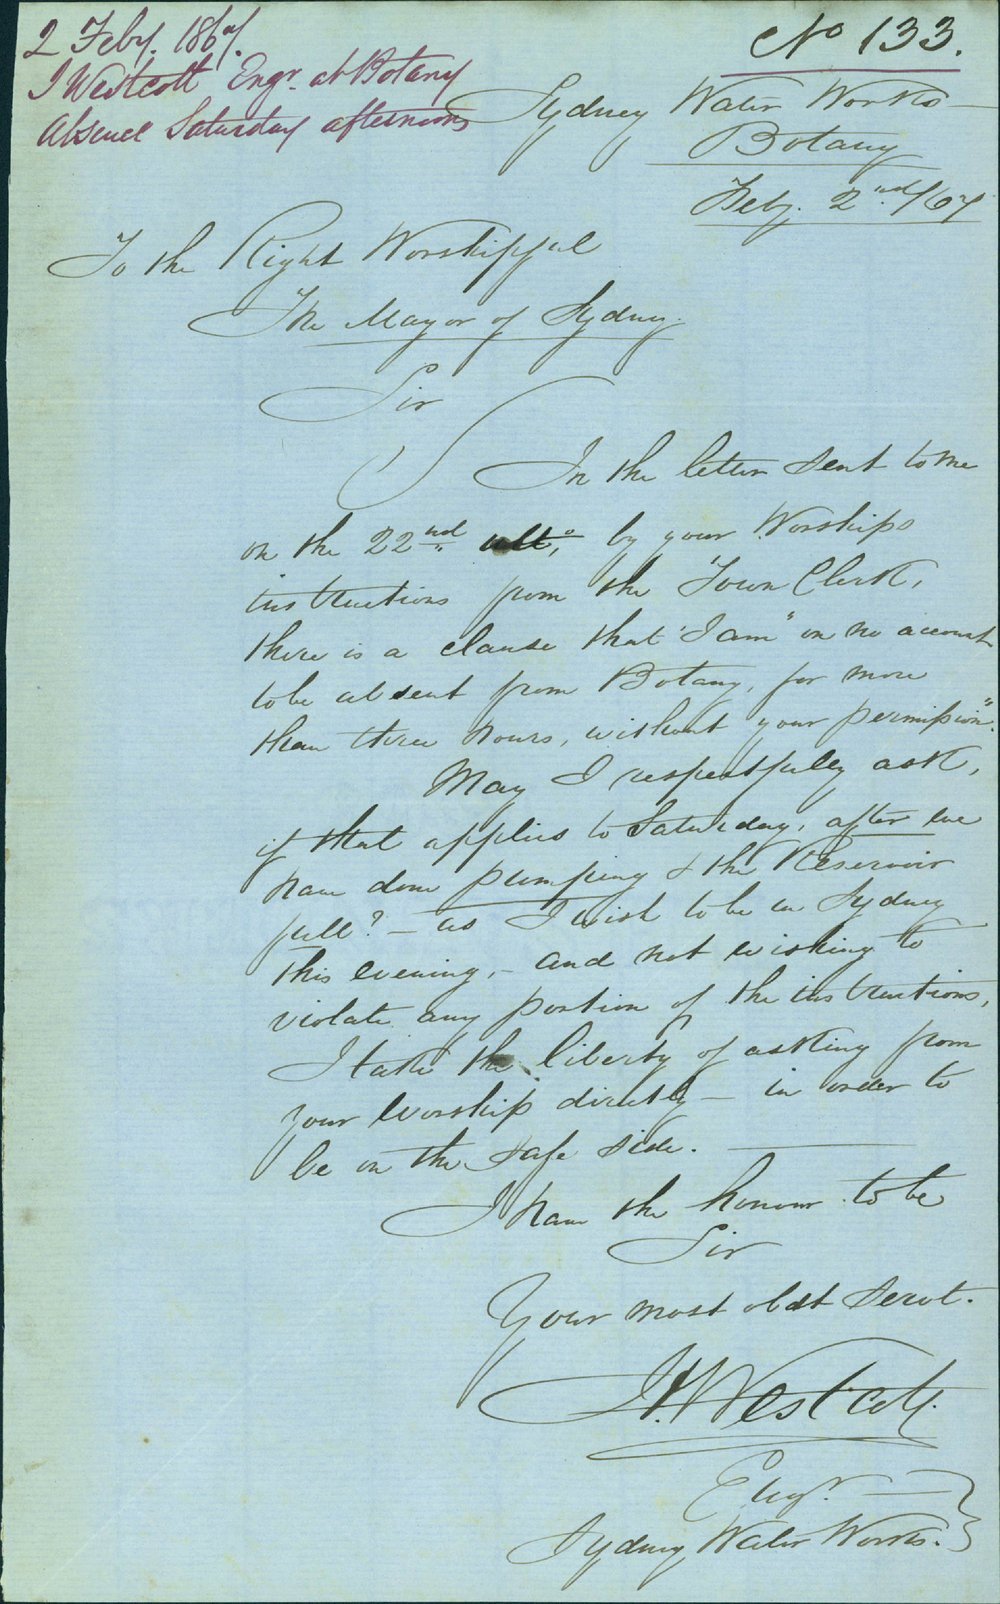 2 Feby. 1867.
J Westcott Engr. at Botany
Absence Saturday afternoons
No 133.
Sydney Water Works
Botany
Feby. 2nd /67
To the Right Worshipful
The Mayor of Sydney.
Sir
In the letter sent to me
on the 22nd ulto, by your Worships
instructions from the Town Clerk,
there is a clause that "I am" on no account
to be absent from Botany, for more
than three hours, without your permission".
May I respectfully ask,
if that applies to Saturday, after we
have done pumping & the Reservoir
full? - as I wish to be in Sydney
this evening, - and not wishing to
violate any portion of the instructions,
I take the liberty of asking from
your Worship directly - in order to
be on the safe side.
I have the honour to be
Sir
Your most obdt Servt.
Westcott.
Engr.
Sydney Water Works.